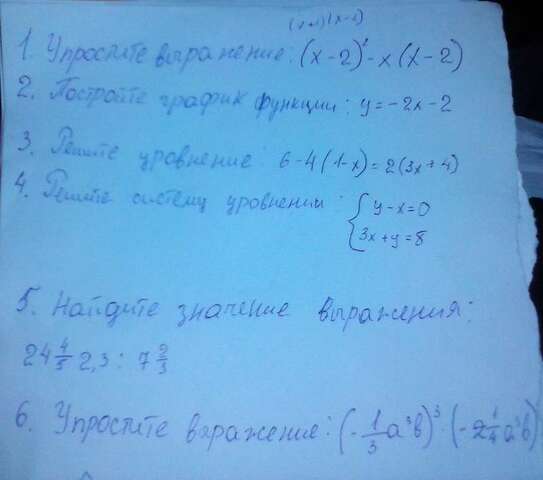 (x-2)(x-2)
1. Упростите выражение: (x-2)² - x(x-2)
2. Постройте график функции: y=-2x-2
3. Решите уровнение: 6-4(1-x)=2(3x+4)
4. Решите систему уровнении: { y-x=0
3x+y=8
5. Найдите значение выражения:
24 4/5 2,3 : 7 2/3
6. Упростите выражение: (-1/3 a³b)³ · (-2 1/4 a³b)